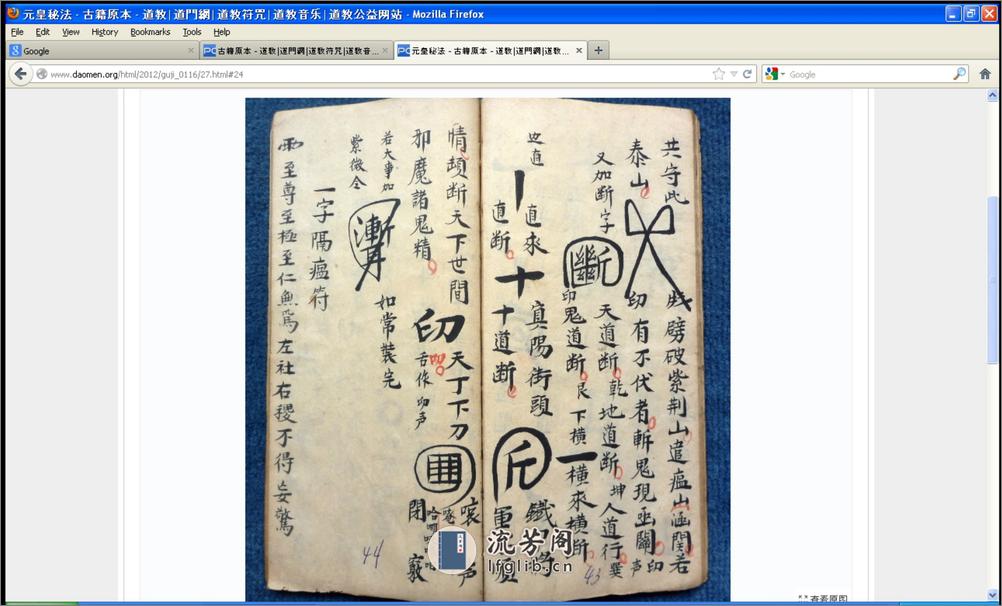 元皇秘法 - 古籍原本 - 道教|道門網|道教符咒|道教音乐|道教公益网站 - Mozilla Firefox
File Edit View History Bookmarks Tools Help
Google
古籍原本 - 道教|道門網|道教符咒|道教音...
元皇秘法 - 古籍原本 - 道教|道門網|道教...
www.daomen.org/html/2012/guji_0116/27.html#24
Google
共守此
劈破紫荆山遣瘟山
若
泰山
印有不伏者斬鬼現
印声
又加断字
斷
天道断乾地道断坤人道行
印鬼道断艮下横一横來横断
直來
真陽街頭
直断
十十道断
斤
情頑断天下世間
印天丁下刀
邪魔諸鬼精
舌作印声
閉
若大事如
如常裝完
紫微令
一字隔瘟符
至尊至極至仁無為左社右稷不得妄驚
44
43
流芳阁
lfglib.cn
查看原图